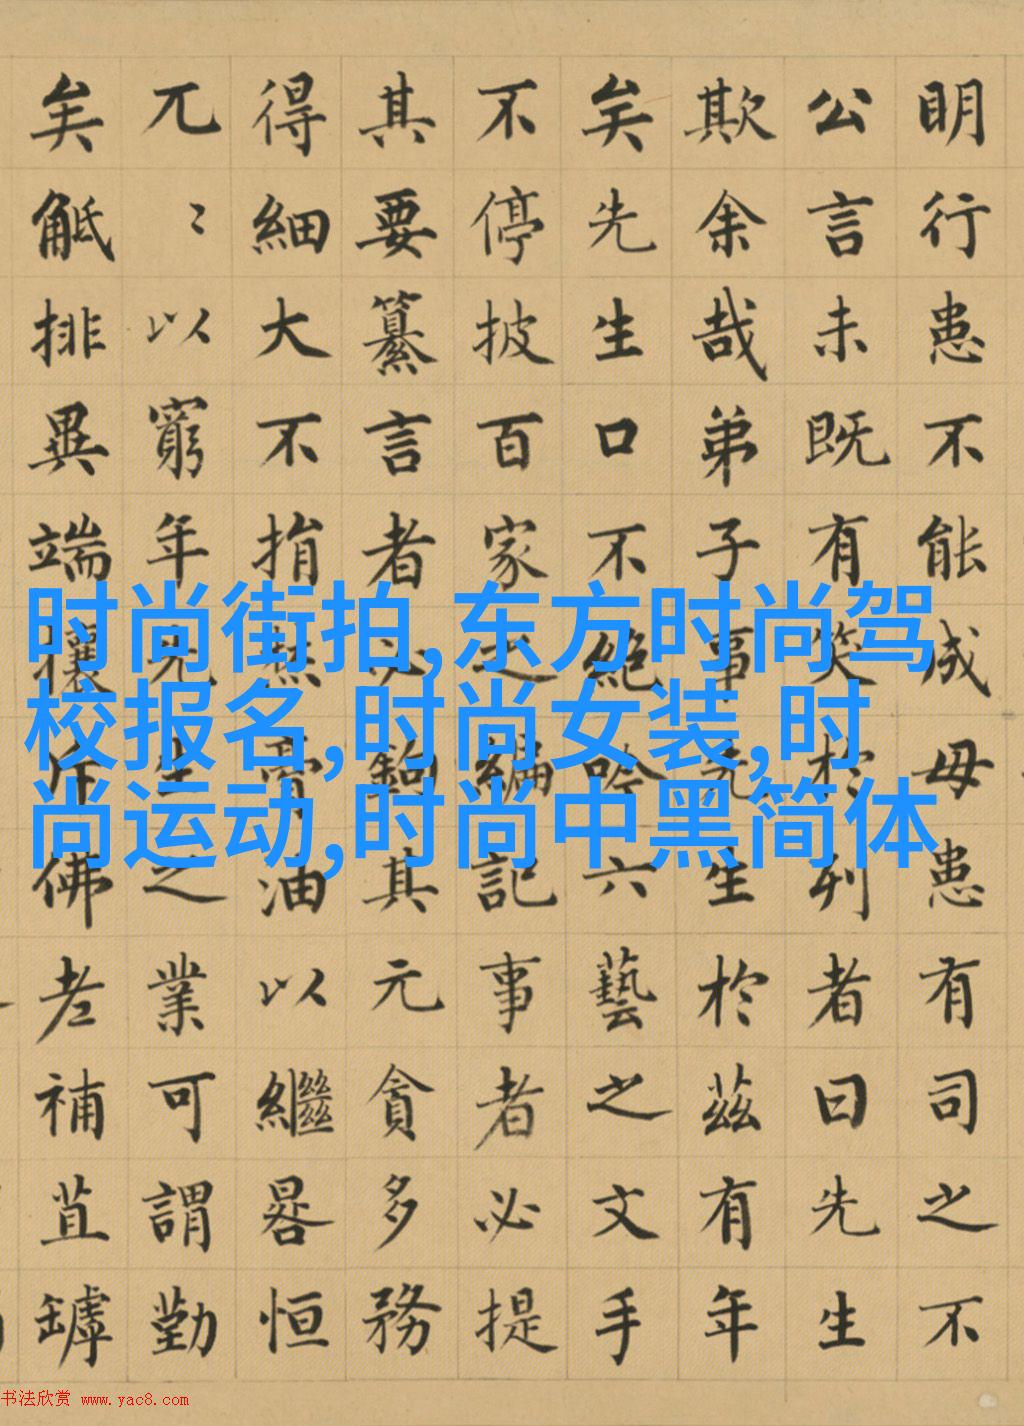 明行患不能成毋患有司之不
公言未既有笑於列者曰先生
欺余哉弟子事先生於茲有年
矣先生口不絕吟六藝之文手
不停披百家之編記事者必提
其要纂言者必鉤其元貪多務
得細大不捐焚膏油以繼晷恒
兀〻以窮年先生之業可謂勤
矣觝排異端攘斥佛老補苴罅
时尚街拍,东方时尚驾
校报名,时尚女装,时
尚运动,时尚中黑简体
书法欣赏 www.yac8.com